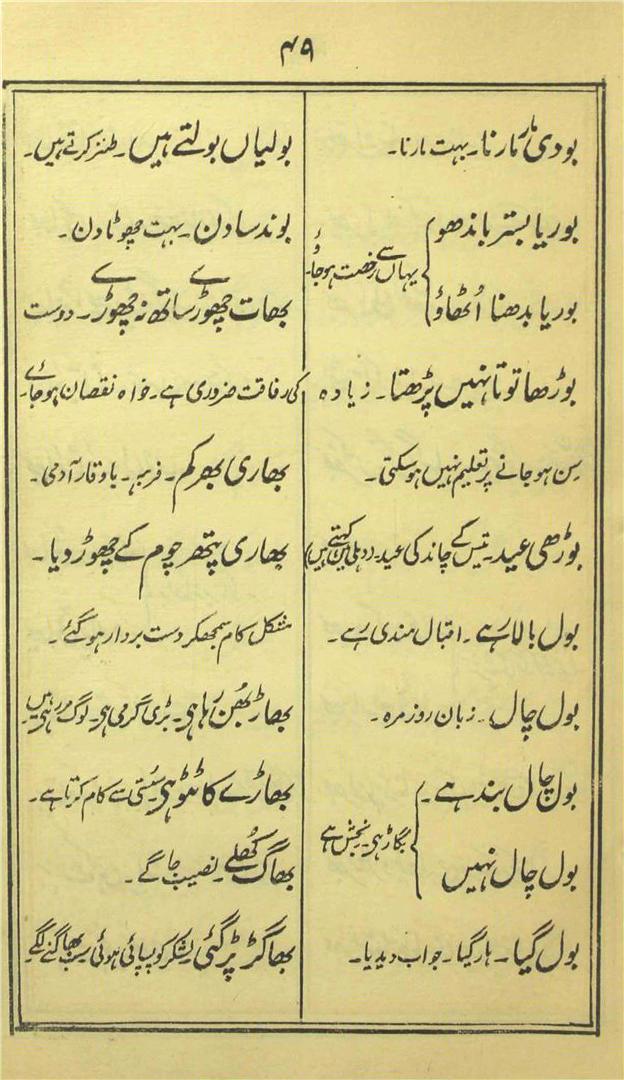 ۴۹
بودی مار مارنا۔ بہت مارنا۔
بوریا بستر باندھو
بوریا بدھنا اُٹھاؤ
یہاں سے رخصت ہوجاؤ۔
بوڑھا توتا نہیں پڑھتا۔ زیادہ
سِن ہوجانے پر تعلیم نہیں ہوسکتی۔
بوڑھی عید۔ تیس کے چاند کی عید۔ (دہلی میں کہتے ہیں)
بول بالا رہے۔ اقبال مندی رہے۔
بول چال۔ زبان روزمرہ۔
بول چال بند ہے۔
بول چال نہیں
بگاڑ ہی۔ رنجش ہے
بول گیا۔ ہار گیا۔ جواب دیدیا۔
بولیاں بولتے ہیں۔ طنز کرتے ہیں۔
بوند سا دن۔ بہت چھوٹا دن۔
بھات چھوڑے ساتھ نہ چھوڑے۔ دوست
کی رفاقت ضروری ہے۔ خواہ نقصان ہوجائے۔
بھاری بھرکم۔ فربہ۔ باوقار آدمی۔
بھاری پتھر چوم کے چھوڑ دیا۔
مشکل کام سمجھکر دست بردار ہوگئے۔
بھاڑ بُھن رہا ہی۔ بڑی گرمی ہی۔ لوگ مررہی ہیں۔
بھاڑے کا ٹٹو ہی۔ سُستی سے کام کرتا ہے۔
بھاگ کُھلے۔ نصیب جاگے۔
بھاگڑ پڑ گئی۔ لشکر کو پسپائی ہوئی سب بھاگنے لگے